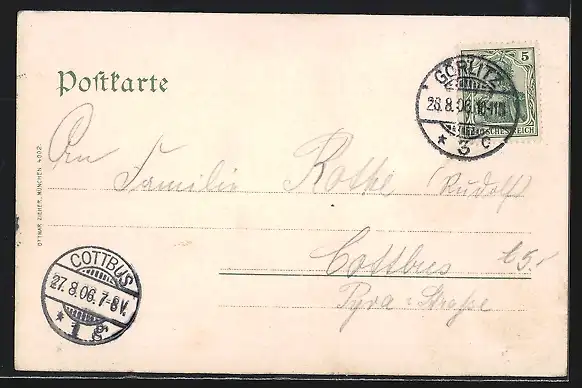 Postkarte
GÖRLITZ
26.8.06.10-11N
* 3 c
5
DEUTSCHES REICH
An
Familie Rothe (Rudolf)
Cottbus
Straße
COTTBUS
27.8.06.7-8V.
* 1
OTTMAR ZIEHER, MÜNCHEN 4002.